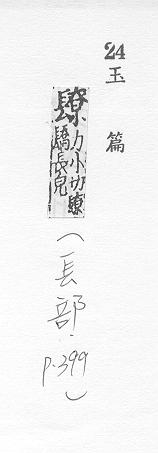 24
玉篇
镽
力小切镽
長皃
(長部.
p.399)